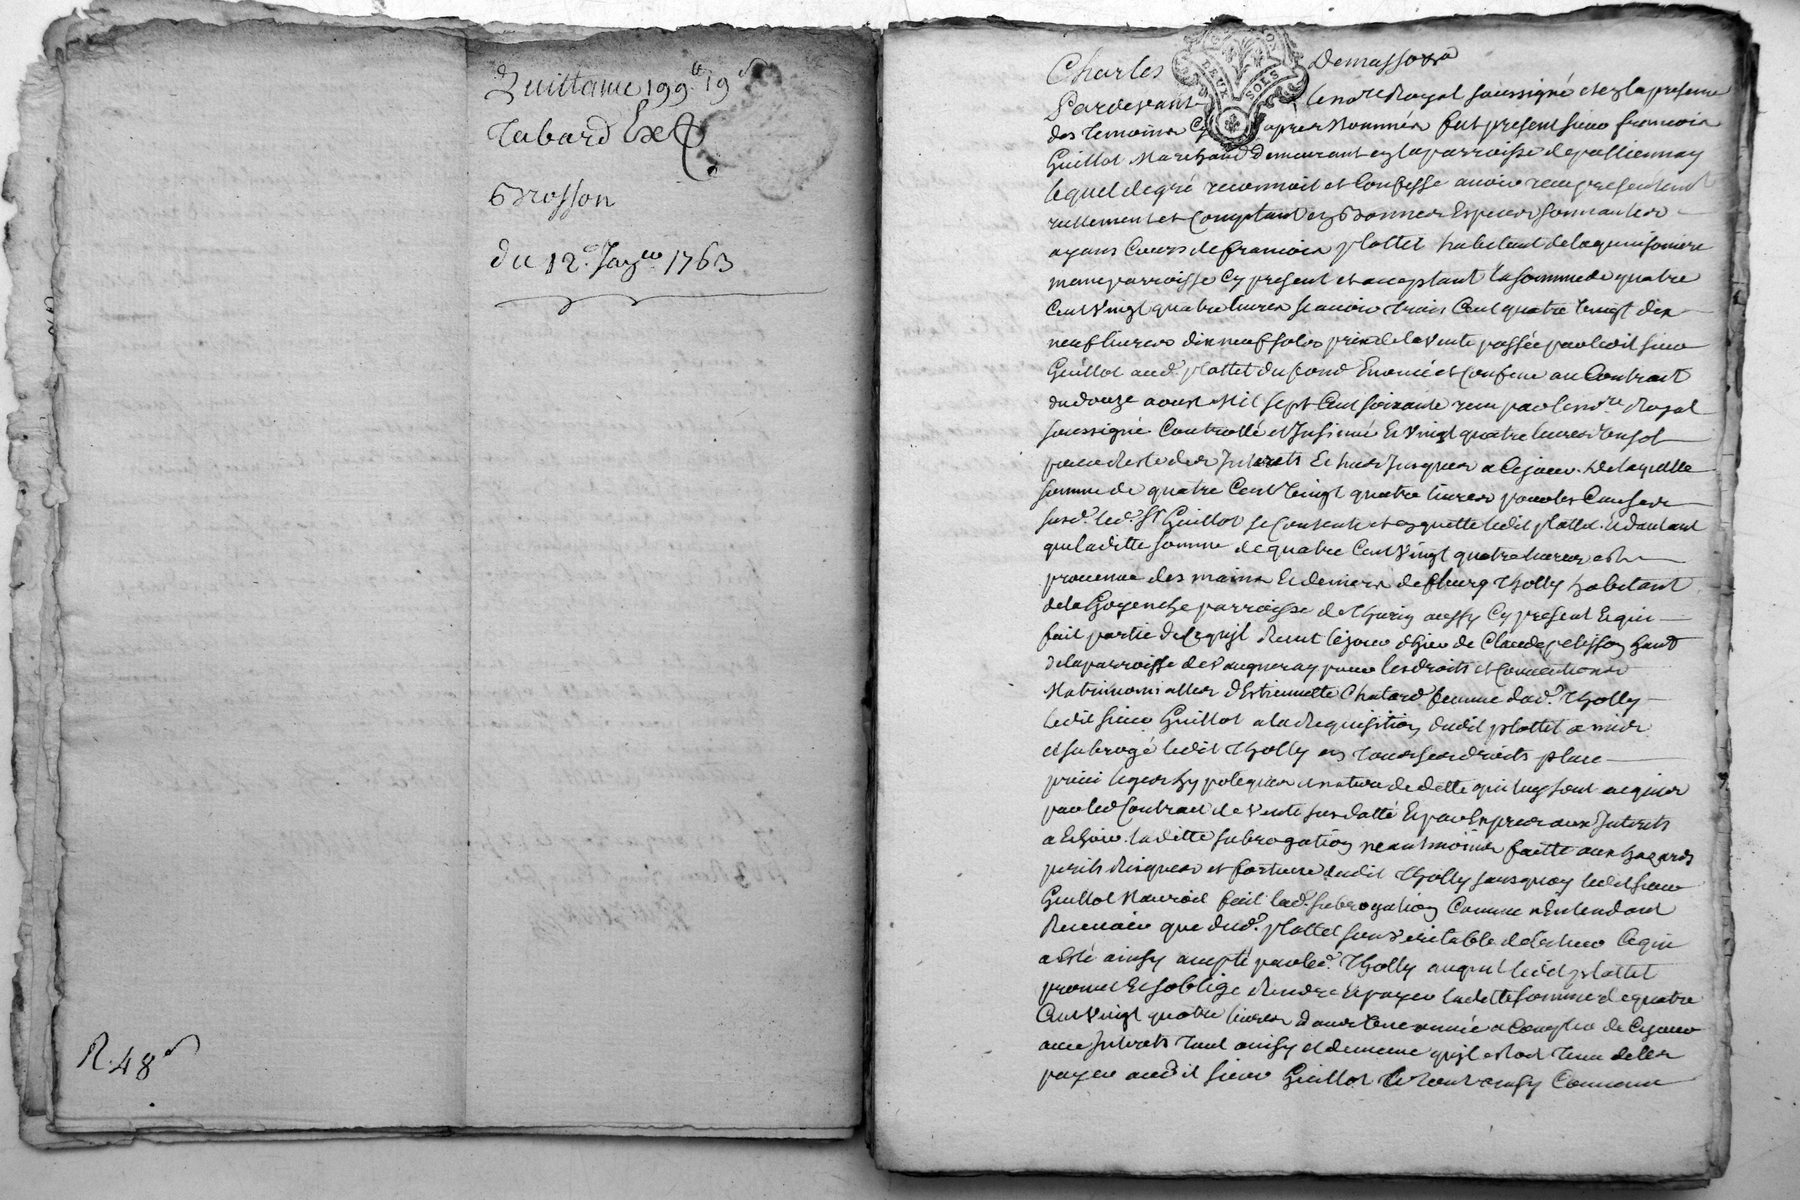 Quittance 199.tt 19.s
Tabard Ex
Brosson
du 12.e Janv.er 1763
R. 48s
DEUX SOLS
Charles Demasso
Pardevant le no.re Royal soussigné et en la presence
des temoins Cy apres Nommés fut present sieur francois
Guillot Marchand demeurant en la parroisse de pollionnay
lequel de gré reconnoit et Confesse avoir reçu presentement
réellement et Comptant en Bonnes Especes sonnantes
ayans Cours de francois plottet habitant de la
meme parroisse Cy present et acceptant la somme de quatre
Cent vingt quatre livres scavoir trois Cent quatre vingt dix
neuf livres dix neuf sols prix de la vente passée par ledit sieur
Guillot aud. plottet du fond Enoncé et Confiné au Contract
du douze aoust Mil sept Cent soixante reçu par le no.re Royal
soussigné Controllé et Insinué Et vingt quatre livres un sol
pour Reste des Interets Echus Jusques a Ce jour. De laquelle
somme de quatre Cent vingt quatre livres pour les Causes
susd. led. Sr Guillot se Contente et en quitte ledit plottet. Et d'autant
que laditte somme de quatre Cent vingt quatre livres est
provenue des mains Et deniers de fleury Tholly habitant
de la parroisse de Thurin aussy Cy present Et qui
fait partie de Ce qu'il Reçut le jour d'hier de Claude pelisson hant
de la parroisse de Vaugneray pour les droits et Conventions
Matrimonialles d'Estiennette Chatard femme dud. Tholly
ledit sieur Guillot a la Requisition dudit plottet a mis
et subrogé ledit Tholly en tous ses droits place
privileges hypoteques et nature de dette qui luy sont acquis
par led Contract de vente sus datté Et par Exprès aux Interets
a Echoir. ladette subrogation neantmoins faitte aux hazards
perils Risques et fortune dudit Tholly sans quoy ledit sieur
Guillot N'auroit fait lad. subrogation Comme n'Entendant
Reconnoir que dud. plottet son veritable debiteur Ce qui
a Eté ainsy accepté par led. Tholly auquel ledit plottet
promet Et s'oblige Rendre Et payer ladette somme de quatre
Cent vingt quatre livres dans une année a Compter de Ce jour
avec Interets tout ainsy et de meme qu'il estoit tenu de les
payer audit sieur Guillot le tout ainsy Convenu